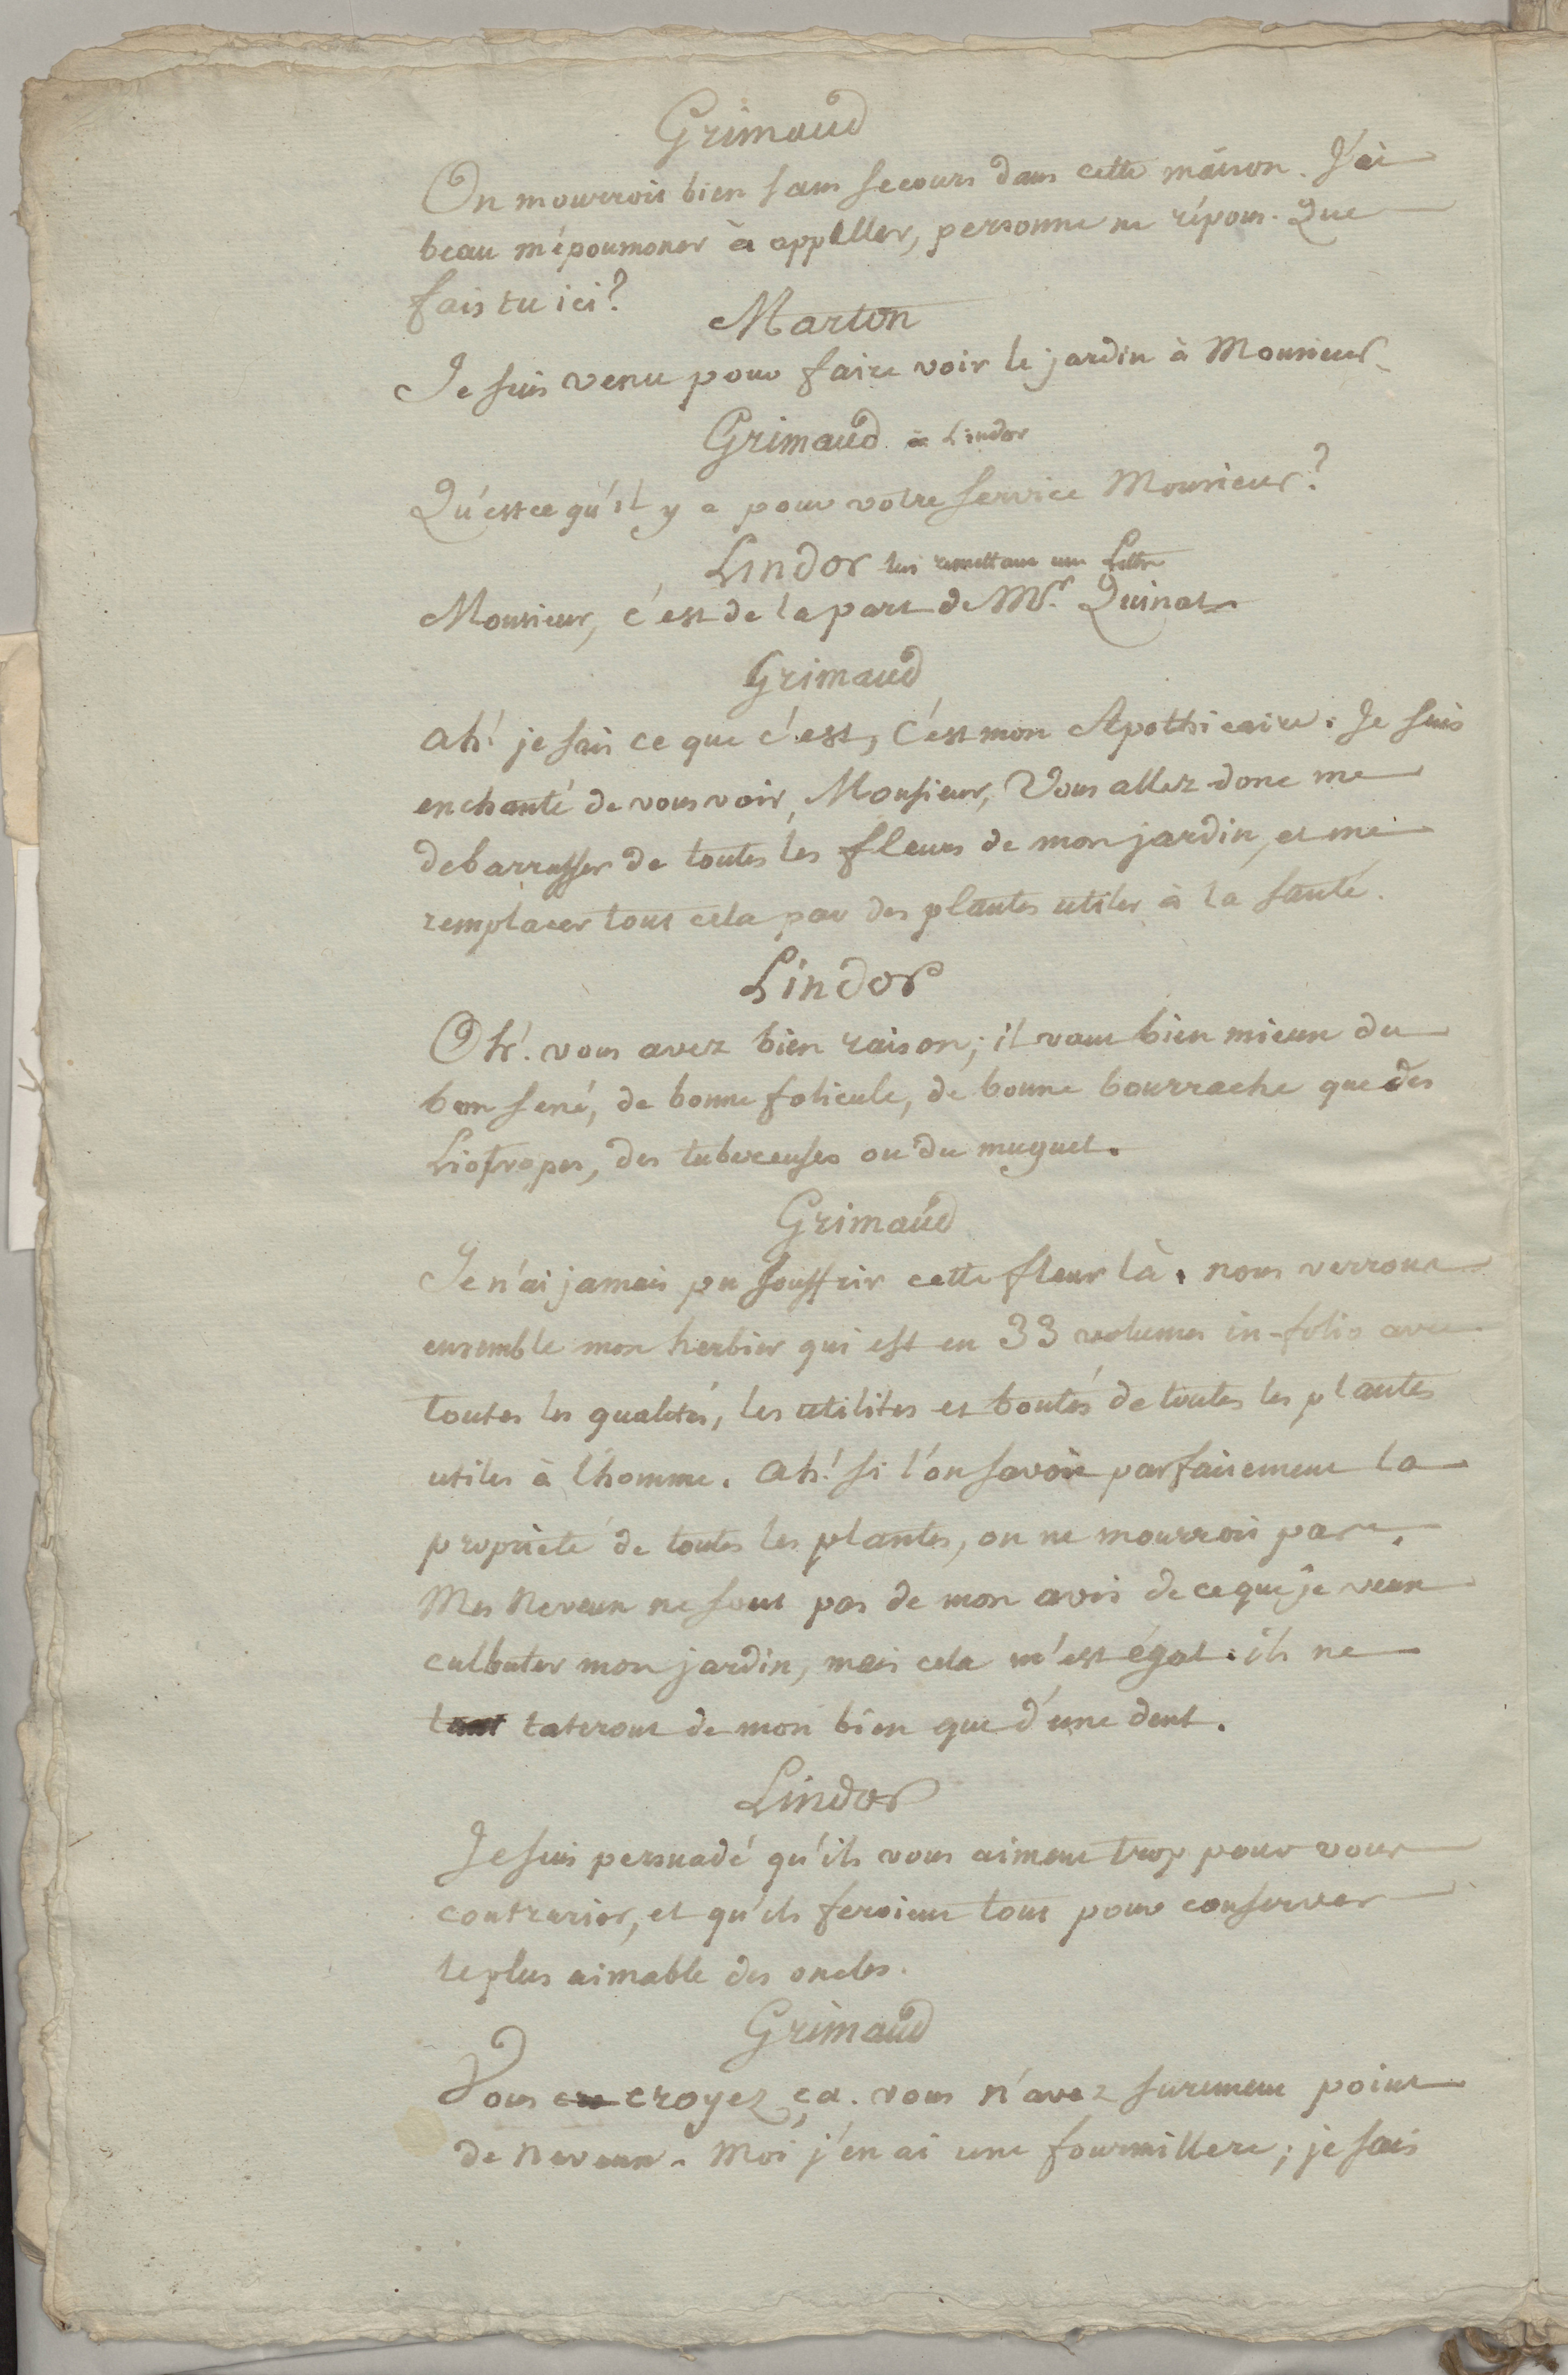 Grimaud
On mourroit bien sans secours dans cette maison. J'ai
beau m'époumoner à appeller, personne ne répons. Que
fais tu ici?
Marton
Je suis venu pour faire voir le jardin à Monsieur.
Grimaud à Lindor
Qu'est ce qu'il y a pour votre service Monsieur?
Lindor lui remettant une Lettre
Monsieur, c'est de la part de Mr. Quinat
Grimaud
ah! je sais ce que c'est, C'est mon Apothicaire. Je suis
enchanté de vous voir, Monsieur, Vous allez donc me
debarrasser de toutes les fleurs de mon jardin, et me
remplacer tout cela par des plantes utiles à la santé.
Lindor
Oh! vous avez bien raison; il vaut bien mieux du
bon sené, de bonne folicule, de bonne bourrache que des
Liotropes, des tubereuses ou du muguet.
Grimaud
Je n'ai jamais pu souffrir cette fleur là. nous verrons
ensemble mon herbier qui est en 33 volumes in-folio avec
toutes les qualités, les utilites et bontés de toutes les plantes
utiles à l'homme. ah! si l'on savoit parfaitement la
proprieté de toutes les plantes, on ne mourroit pas.
Mes Neveux ne sont pas de mon avis de ce que je veux
culbuter mon jardin, mais cela m'est égal. ils ne
tateront de mon bien que d'une dent.
Lindor
Je suis persuadé qu'ils vous aiment trop pour vous
contrarier, et qu'ils feroient tout pour conserver
le plus aimable des oncles.
Grimaud
Vous cro croyez ça. vous n'avez surement point
de Neveux. Moi j'en ai une fourmillere; je sais